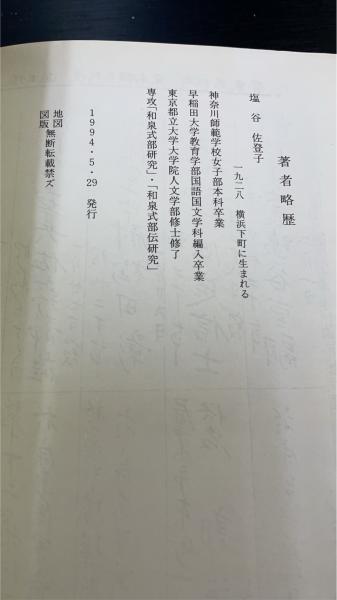 著者略歴
塩谷 佐登子
一九二八 横浜下町に生まれる
神奈川師範学校女子部本科卒業
早稲田大学教育学部国語国文学科編入卒業
東京都立大学大学院人文学部修士修了
専攻「和泉式部研究」・「和泉式部伝研究」
1994・5・29 発行
地図
図版
無断転載禁ズ